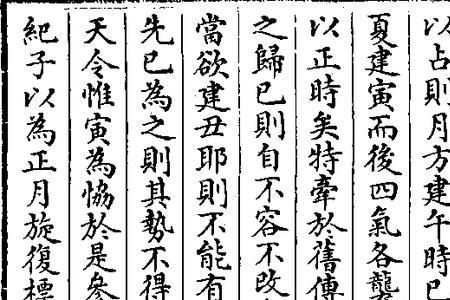 以占則月方建午時已
夏建寅而後四氣各龍
以正時矣特牽於舊傳
之歸已則自不容不改
當欲建丑耶則不能有
先已為之則其勢不得
天令惟寅為恊於是叅
紀子以為正月旋復標